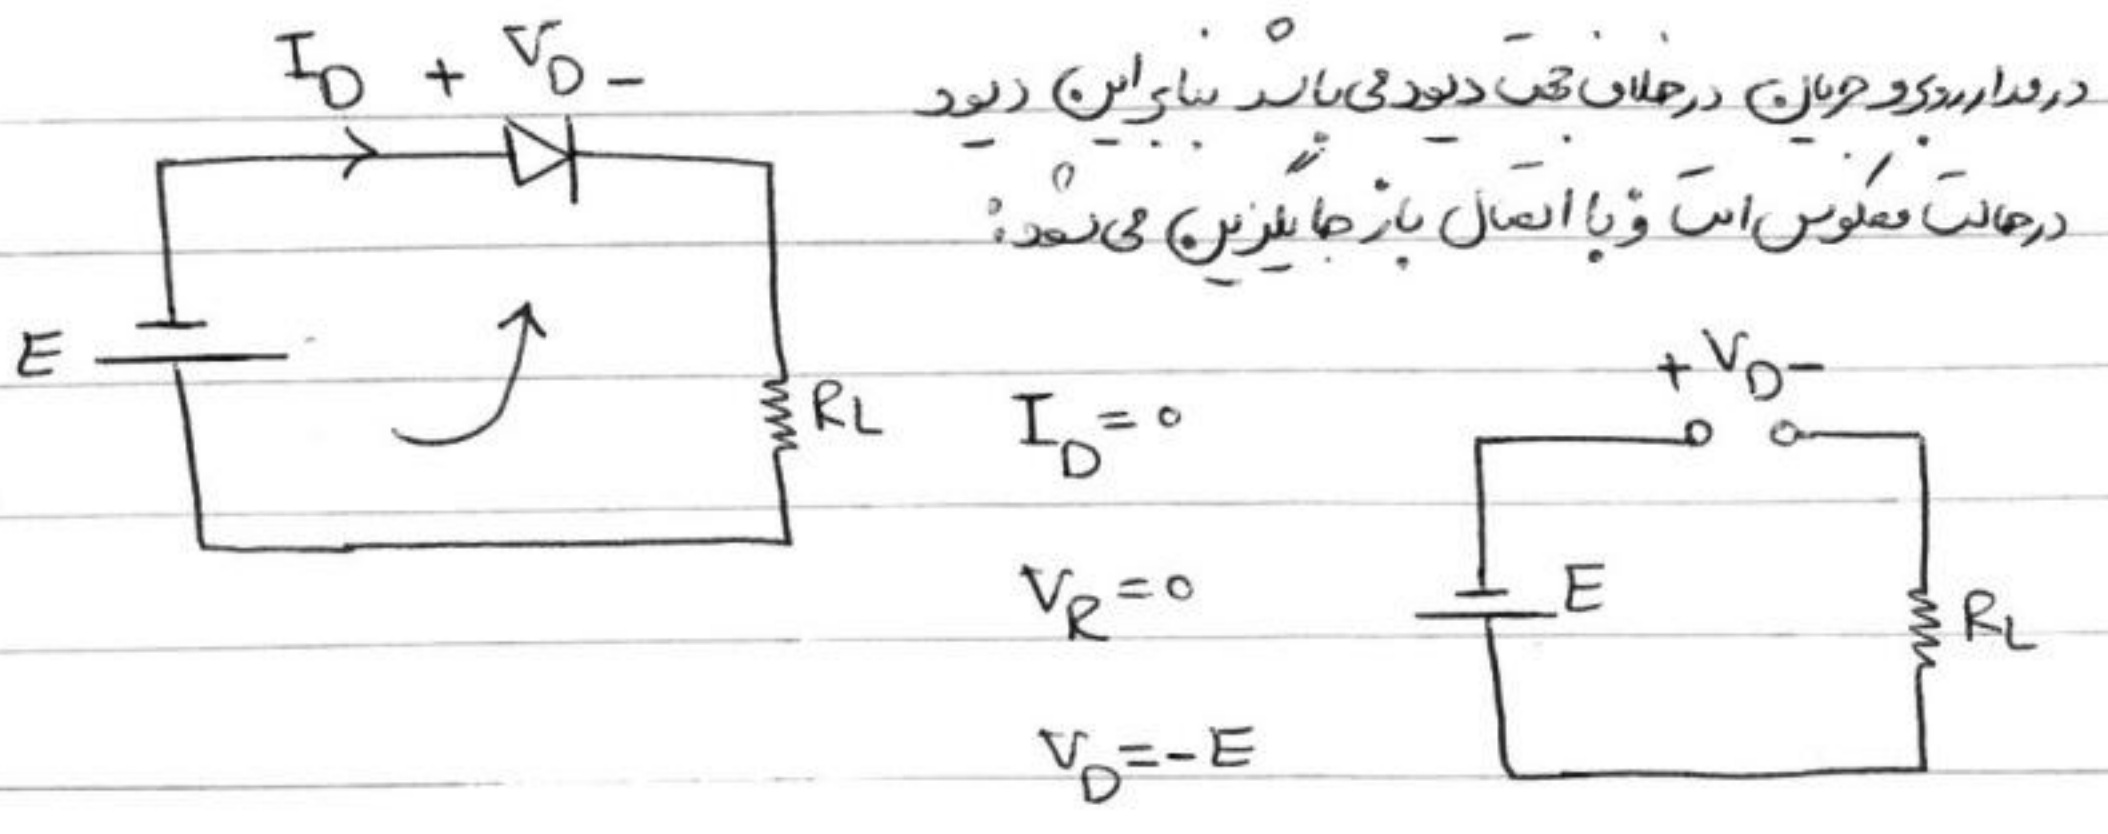 I_D + V_D -
در مدار روبرو جریان در خلاف جهت دیود می باشد بنابراین دیود
در حالت معکوس است و با اتصال باز جایگزین می شود:
E
R_L
+ V_D -
I_D = 0
V_R = 0
E
R_L
V_D = - E